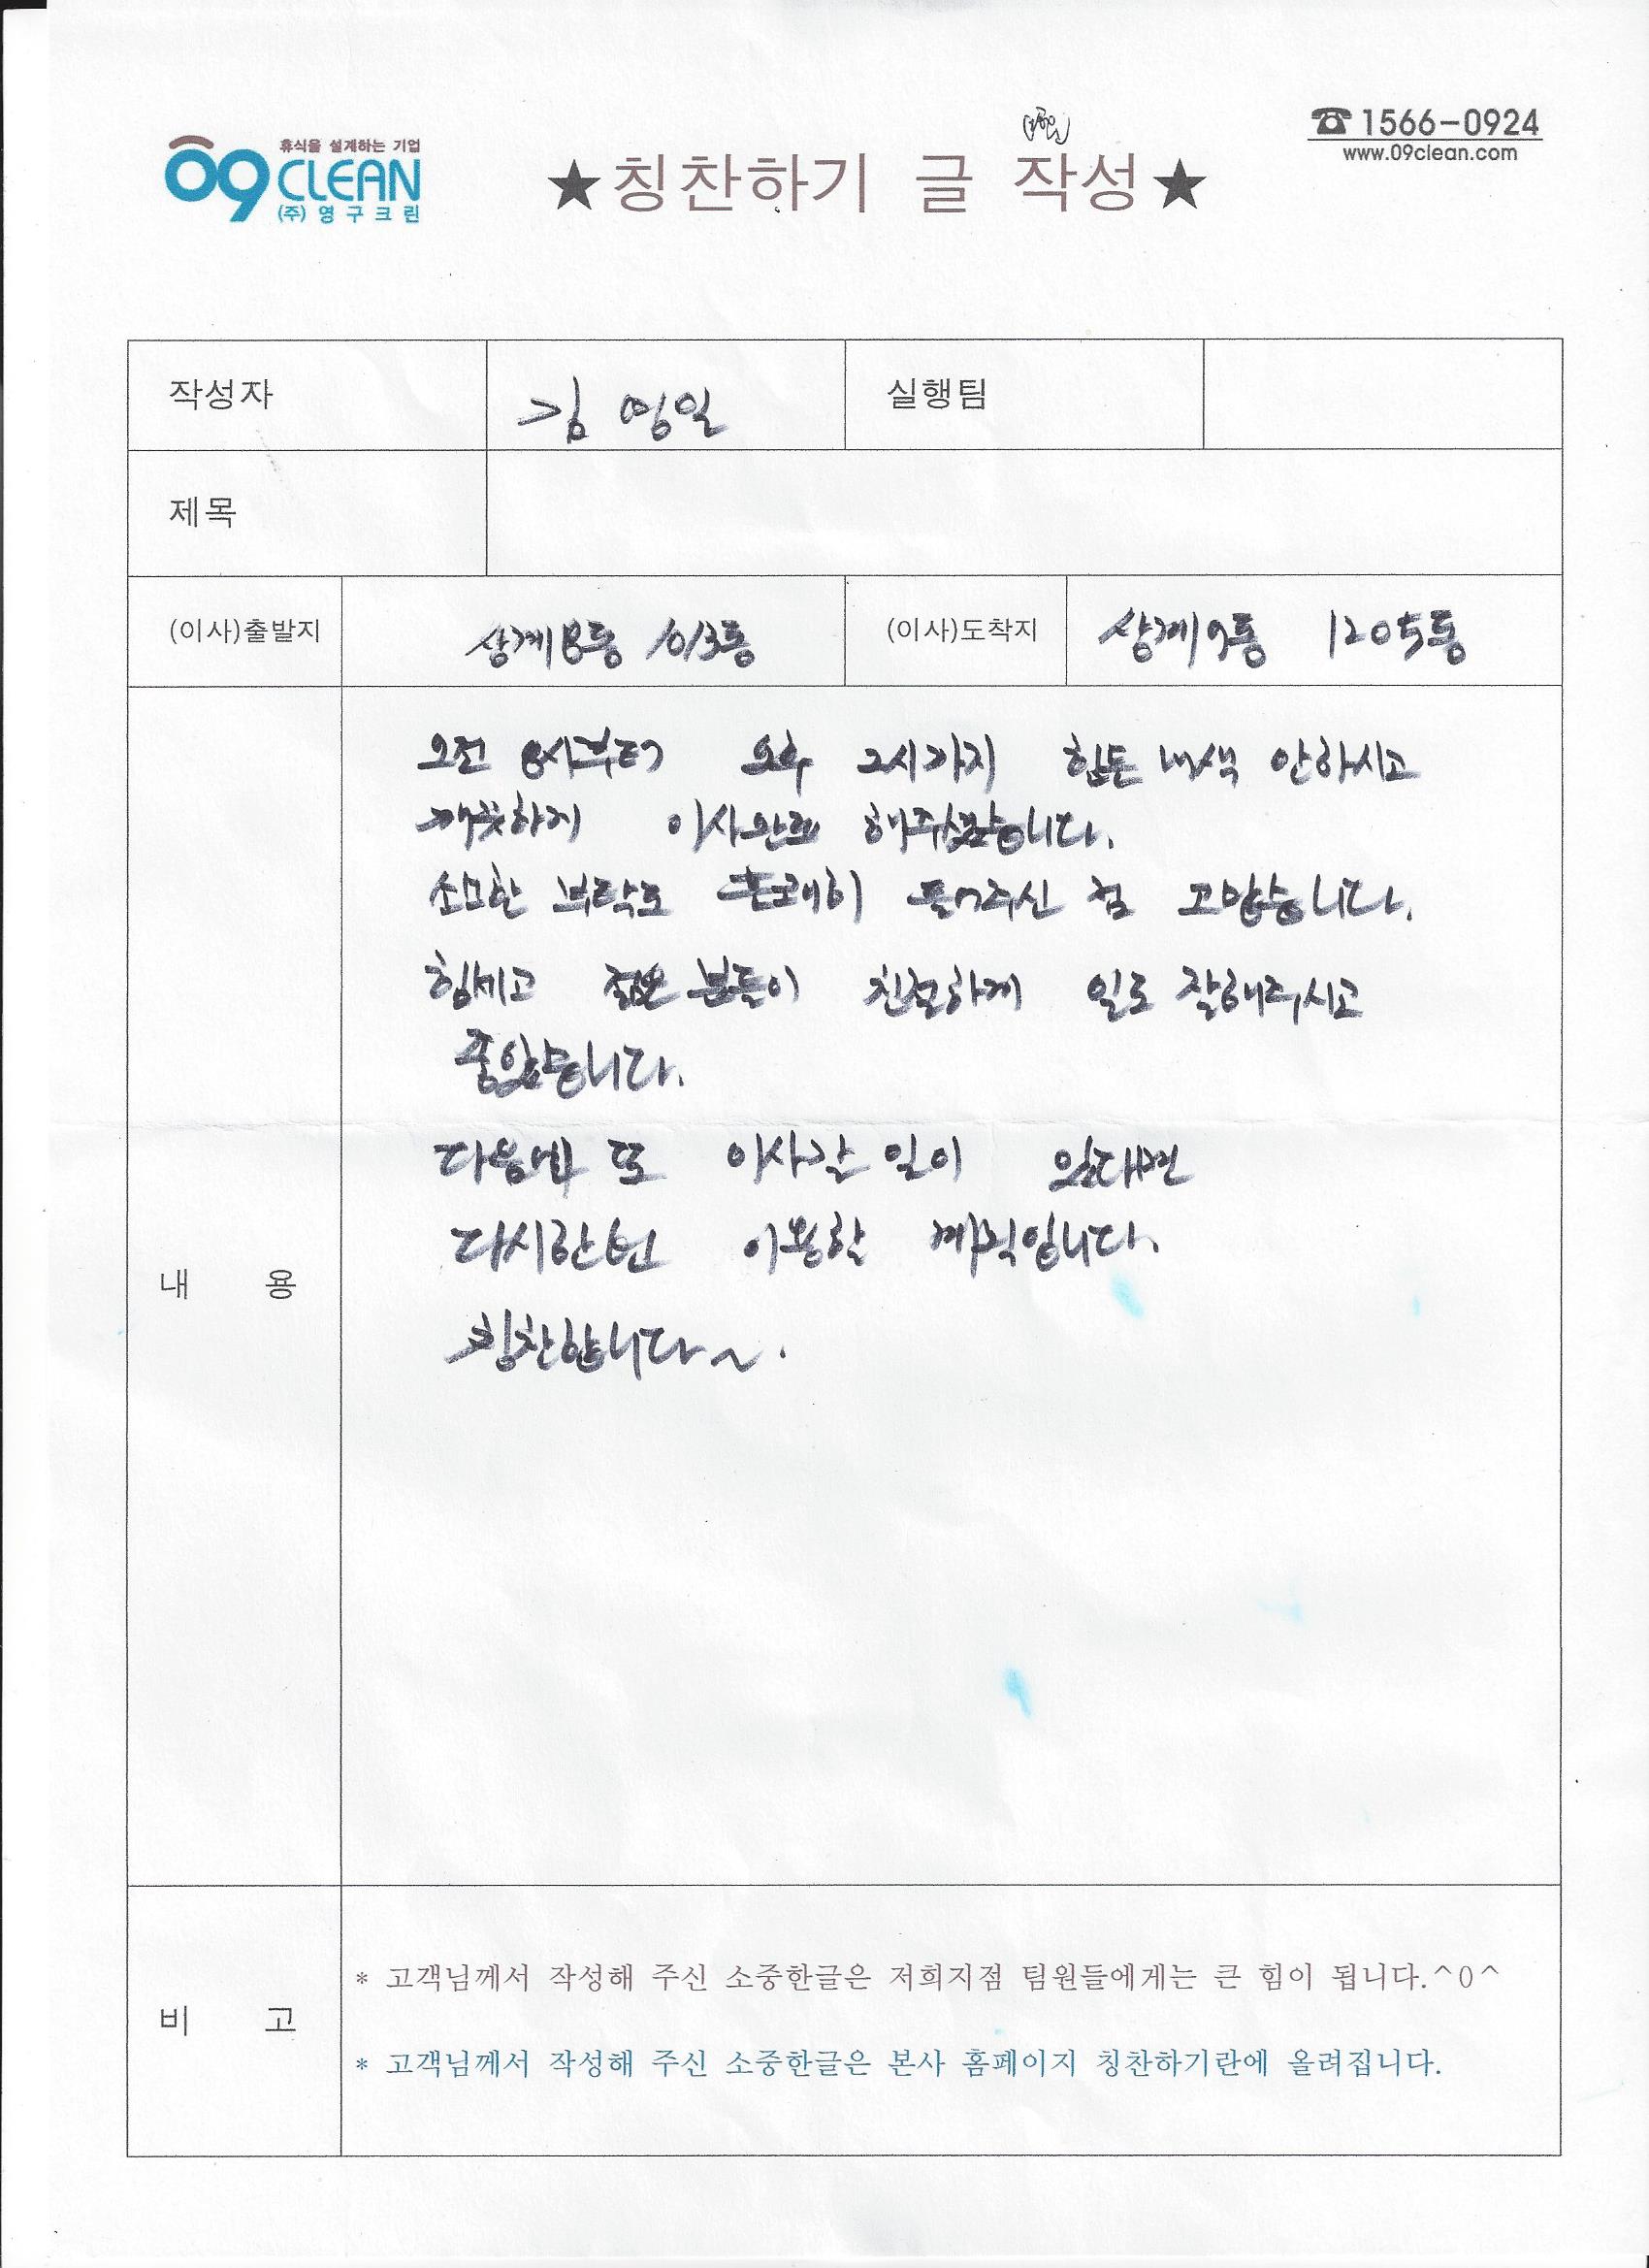 휴식을 설계하는 기업
09 CLEAN
(주)영구크린
☎ 1566-0924
www.09clean.com
★칭찬하기 글 작성★
작성자 김영일 실행팀
제목
(이사)출발지 상계8동 1013동 (이사)도착지 상계9동 1205동
내 용
오전 8시부터 오후 2시까지 힘든 내색 안하시고
깨끗하게 이사완료 해주셨습니다.
소소한 부탁도 흔쾌히 들어주신 점 고맙습니다.
힘세고 젊은 분들이 친절하게 일도 잘해주시고
좋았습니다.
다음번 또 이사갈 일이 있다면
다시한번 이용할 계획입니다.
칭찬합니다~.
비 고
* 고객님께서 작성해 주신 소중한글은 저희지점 팀원들에게는 큰 힘이 됩니다.^0^
* 고객님께서 작성해 주신 소중한글은 본사 홈페이지 칭찬하기란에 올려집니다.